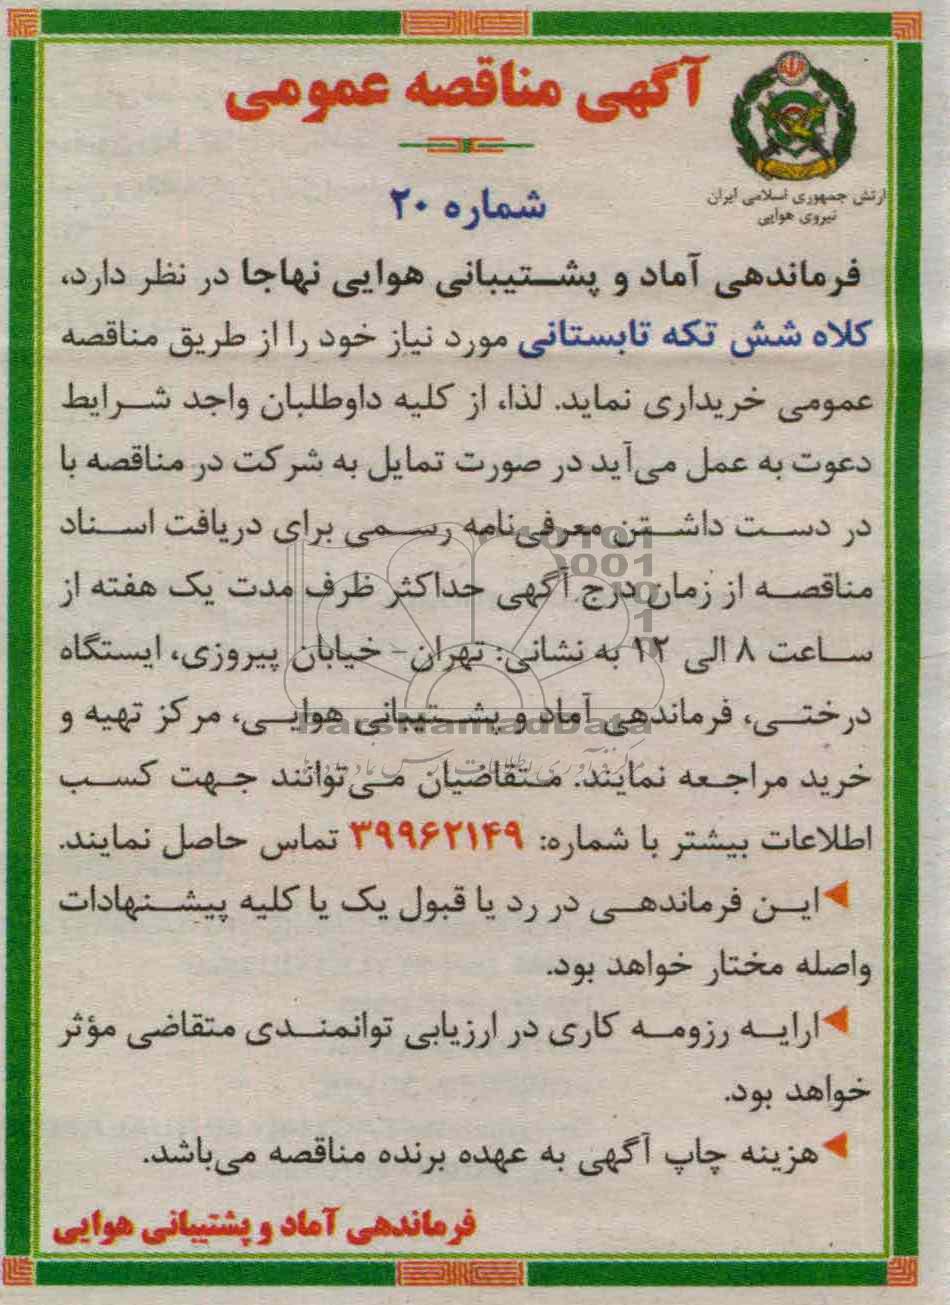 آگهی مناقصه عمومی
ارتش جمهوری اسلامی ایران
نیروی هوایی
شماره ۲۰
فرماندهی آماد و پشتیبانی هوایی نهاجا در نظر دارد،
کلاه شش تکه تابستانی مورد نیاز خود را از طریق مناقصه
عمومی خریداری نماید. لذا، از کلیه داوطلبان واجد شرایط
دعوت به عمل می‌آید در صورت تمایل به شرکت در مناقصه با
در دست داشتن معرفی‌نامه رسمی برای دریافت اسناد
مناقصه از زمان درج آگهی حداکثر ظرف مدت یک هفته از
ساعت ۸ الی ۱۲ به نشانی: تهران- خیابان پیروزی، ایستگاه
درختی، فرماندهی آماد و پشتیبانی هوایی، مرکز تهیه و
خرید مراجعه نمایند. متقاضیان می‌توانند جهت کسب
اطلاعات بیشتر با شماره: ۳۹۹۶۲۱۴۹ تماس حاصل نمایند.
این فرماندهی در رد یا قبول یک یا کلیه پیشنهادات
واصله مختار خواهد بود.
ارایه رزومه کاری در ارزیابی توانمندی متقاضی مؤثر
خواهد بود.
هزینه چاپ آگهی به عهده برنده مناقصه می‌باشد.
فرماندهی آماد و پشتیبانی هوایی
ParsNamadData